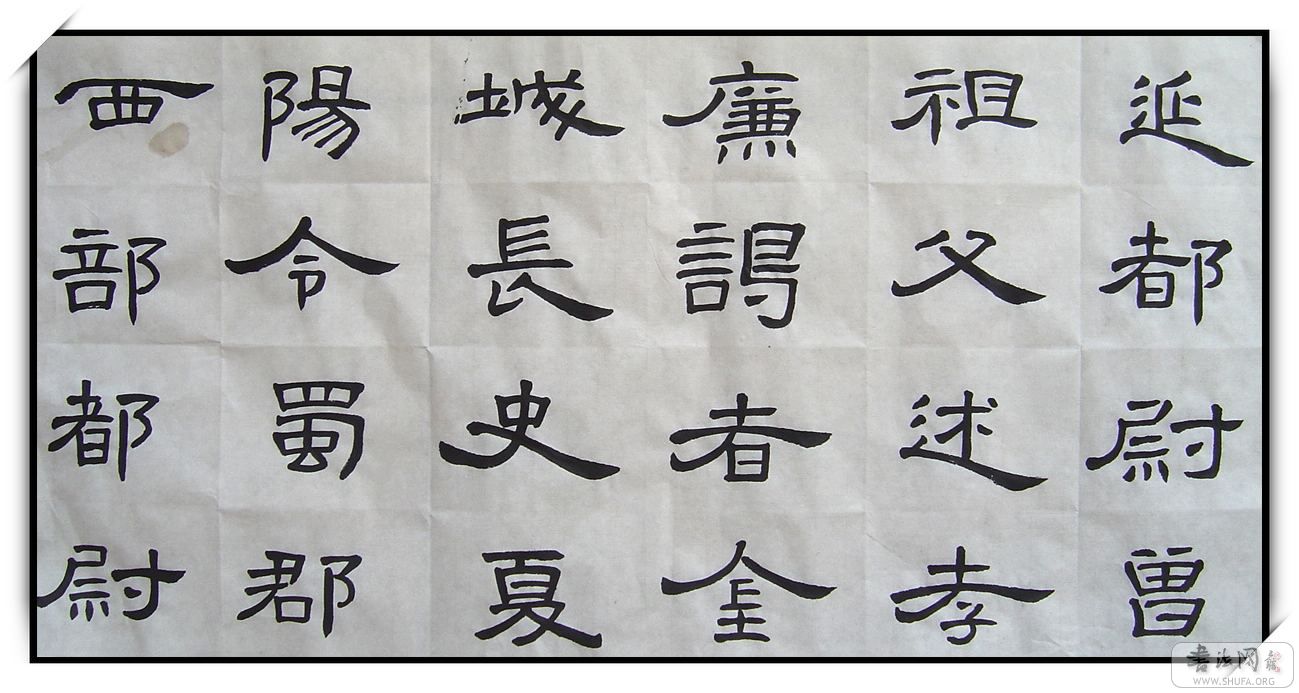 延都尉曾
祖父述孝
廉謁者金
城長史夏
陽令蜀郡
西部都尉
书法网
WWW.SHUFA.ORG